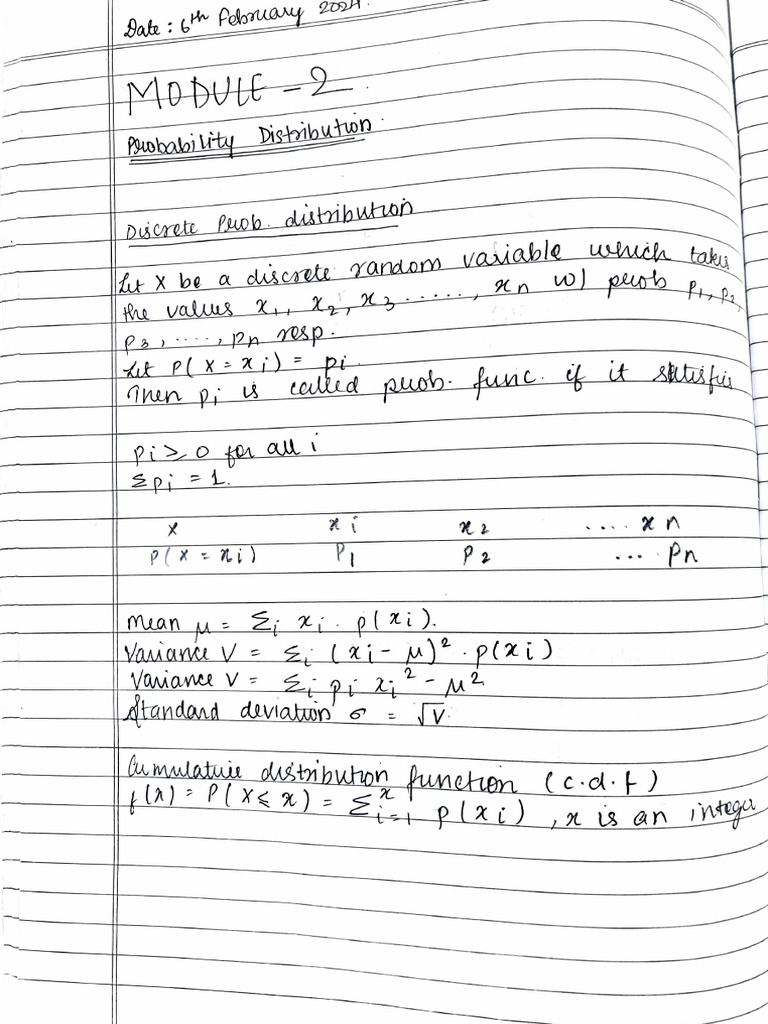 Date: 6th February 2024.
MODULE - 2.
Probability Distribution.
Discrete Prob. distribution
Let X be a discrete random variable which takes
the values x₁, x₂, x₃ ......, xn w/ prob p₁, p₂,
p₃, ...., pn resp.
Let P(X = xi) = pi
Then pi is called prob. func. if it satisfies
pi ≥ 0 for all i
Σpi = 1.
X xi x2 .... xn
P(X = xi) P1 P2 ... Pn
Mean μ = Σi xi . p(xi).
Variance V = Σi (xi - μ)² . p(xi)
Variance V = Σi pi xi² - μ²
Standard deviation σ = √V.
Cumulative distribution function (c.d.f)
f(x) = P(X ≤ x) = Σ^x i=1 p(xi), x is an intege